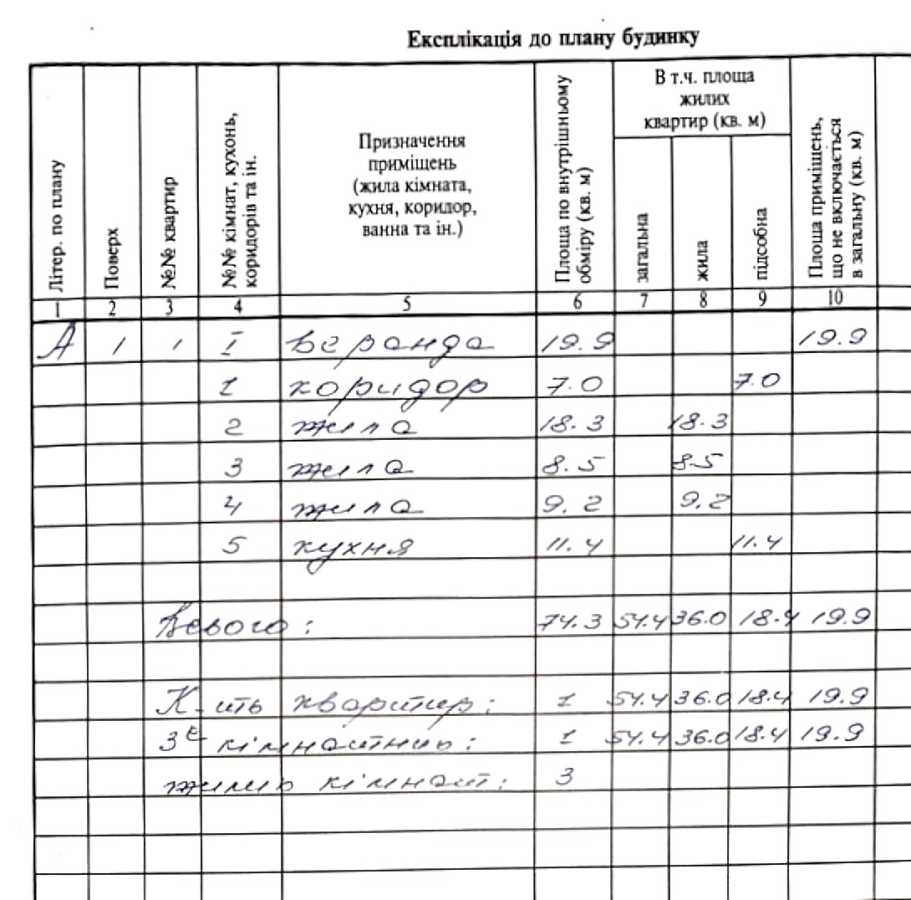 Експлікація до плану будинку
Літер. по плану
Поверх
№№ квартир
№№ кімнат, кухонь, коридорів та ін.
Призначення приміщень (жила кімната, кухня, коридор, ванна та ін.)
Площа по внутрішньому обміру (кв. м)
В т.ч. площа жилих квартир (кв. м)
загальна
жила
підсобна
Площа приміщень, що не включається в загальну (кв. м)
1 2 3 4 5 6 7 8 9 10
А 1 1 І веранда 19.9 19.9
1 коридор 7.0 7.0
2 жила 18.3 18.3
3 жила 8.5 8.5
4 жила 9.2 9.2
5 кухня 11.4 11.4
Всього: 74.3 54.4 36.0 18.4 19.9
К-ить квартир: 1 54.4 36.0 18.4 19.9
3х кімнатних: 1 54.4 36.0 18.4 19.9
жилих кімнат: 3